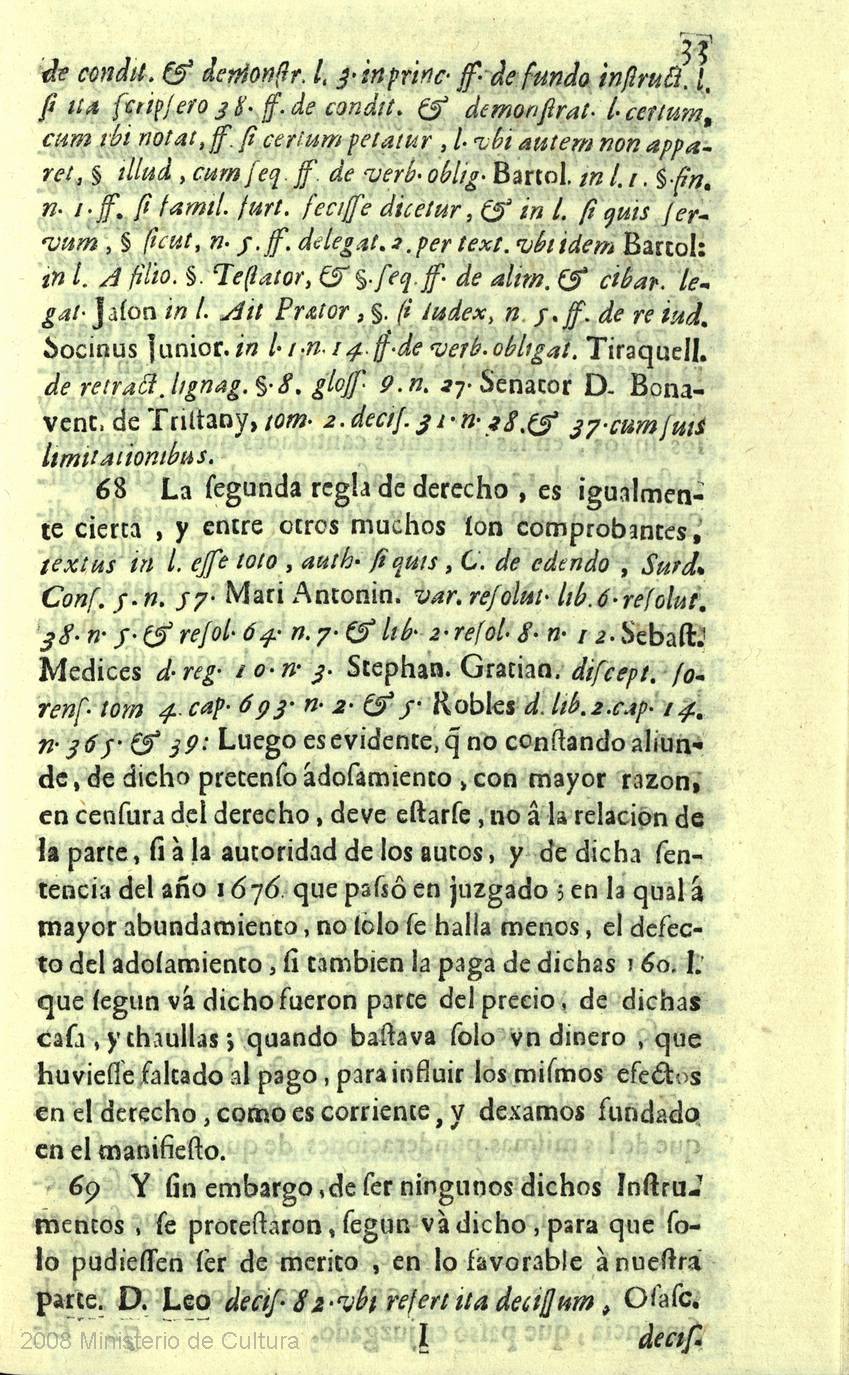 33
de condit. & demonſtr. l. 3. in princ. ff. de fundo inſtruct. l.
ſi ita ſcripſero 38. ff. de condit. & demonſtrat. l. certum,
cum ibi notat, ff. ſi certum petatur, l. vbi autem non appa-
ret, § illud, cum ſeq. ff. de verb. oblig. Bartol. in l. 1. §. fin.
n. 1. ff. ſi famil. furt. feciſſe dicetur, & in l. ſi quis ſer-
vum, § ſicut, n. 5. ff. de legat. 2. per text. vbi idem Bartol:
in l. A filio. §. Teſtator, & §. ſeq. ff. de alim. & cibar. le-
gat. Jaſon in l. Ait Prætor, §. ſi iudex, n. 5. ff. de re iud.
Socinus Junior. in l. 1. n. 14. ff. de verb. obligat. Tiraquell.
de retract. lignag. §. 8. gloſſ. 9. n. 27. Senator D. Bona-
vent. de Triſtany, tom. 2. deciſ. 31. n. 38. & 37. cum ſuis
limitationibus.
68 La ſegunda regla de derecho, es igualmen-
te cierta, y entre otros muchos ſon comprobantes,
textus in l. eſſe toto, auth. ſi quis, C. de edendo, Surd.
Conſ. 5. n. 57. Mari Antonin. var. reſolut. lib. 6. reſolut.
38. n. 5. & reſol. 64. n. 7. & lib. 2. reſol. 8. n. 12. Sebaſt.
Medices d. reg. 10. n. 3. Stephan. Gratian. diſcept. fo-
renſ. tom 4. cap. 693. n. 2. & 5. Robles d. lib. 2. cap. 14.
n. 365. & 39: Luego es evidente, q̃ no conſtando aliun-
de, de dicho pretenſo ádoſamiento, con mayor razon,
en cenſura del derecho, deve eſtarſe, no â la relacion de
la parte, ſi à la autoridad de los autos, y de dicha ſen-
tencia del año 1676. que paſsô en juzgado; en la qual á
mayor abundamiento, no ſolo ſe halla menos, el defec-
to del adoſamiento, ſi tambien la paga de dichas 160. l.
que ſegun vá dicho fueron parte del precio, de dichas
caſa, y thaullas; quando baſtava ſolo vn dinero, que
huvieſſe faltado al pago, para influir los miſmos efectos
en el derecho, como es corriente, y dexamos fundado
en el manifieſto.
69 Y ſin embargo, de ſer ningunos dichos Inſtru-
mentos, ſe proteſtaron, ſegun và dicho, para que ſo-
lo pudieſſen ſer de merito, en lo favorable à nueſtra
parte. D. Leo deciſ. 82. vbi refert ita deciſſum, Oſaſc.
I deciſ.
2008 Ministerio de Cultura